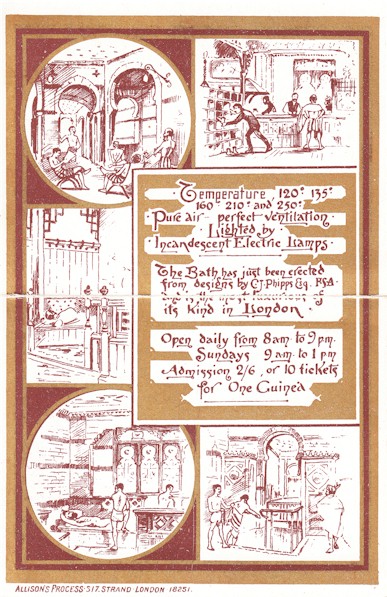 Temperature 120° 135°
160° 210° and 250°
Pure air perfect ventilation
Lighted by
Incandescent Electric Lamps.
The Bath has just been erected
from designs by C.J. Phipps Esq. FSA
its kind in London.
Open daily from 8 am to 9 pm.
Sundays 9 am to 1 pm
Admission 2/6, or 10 tickets
for One Guinea
ALLISON'S PROCESS·317. STRAND LONDON 18251.